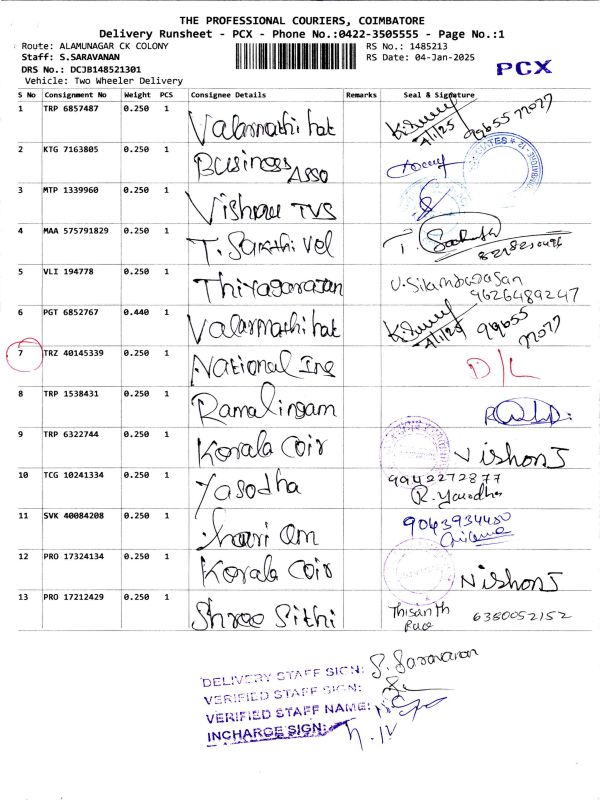 THE PROFESSIONAL COURIERS, COIMBATORE
Delivery Runsheet - PCX - Phone No.:0422-3505555 - Page No.:1
Route: ALAMUNAGAR CK COLONY RS No.: 1485213
Staff: S.SARAVANAN RS Date: 04-Jan-2025
DRS No.: DCJB148521301 PCX
Vehicle: Two Wheeler Delivery
S No Consignment No Weight PCS Consignee Details Remarks Seal & Signature
1 TRP 6857487 0.250 1 Valarmathi hat 4/1/25 99655 77077
2 KTG 7163805 0.250 1 Business Asso
3 MTP 1339960 0.250 1 Vishnu TVS
4 MAA 575791829 0.250 1 T. Sakthi vel T.
5 VLI 194778 0.250 1 Thiyagarajan U.Silambarasan
9626489247
6 PGT 6852767 0.440 1 Valarmathi hat 4/1/25 99655 77077
7 TRZ 40145339 0.250 1 National Ing D/L
8 TRP 1538431 0.250 1 Ramalingam
9 TRP 6322744 0.250 1 Korala Coir
10 TCG 10241334 0.250 1 Yasodha 9942272877
R.Yasodha
11 SVK 40084208 0.250 1 hari Om 9043934480
12 PRO 17324134 0.250 1 Korala Coir
13 PRO 17212429 0.250 1 Shree Sithi Thisanth 6380052152
DELIVERY STAFF SIGN: S. Saravanan
VERIFIED STAFF SIGN:
VERIFIED STAFF NAME:
INCHARGE SIGN: